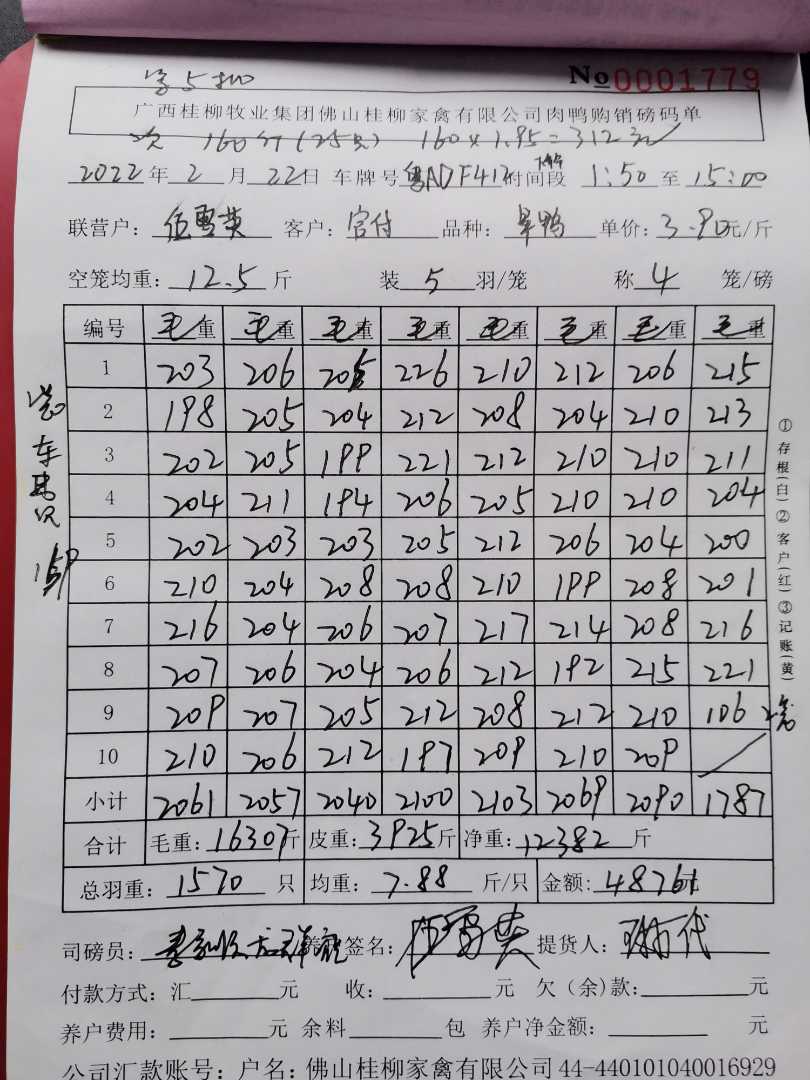 No 0001779
广西桂柳牧业集团佛山桂柳家禽有限公司肉鸭购销磅码单
160斤(25只) 160×1.95=312元
2022年2月22日 车牌号粤ADF412时间段 1:50至15:00
联营户:伍雪英 客户:官付 品种:旱鸭 单价:3.90元/斤
空笼均重:12.5斤 装5羽/笼 称4笼/磅
编号 毛重 毛重 毛重 毛重 毛重 毛重 毛重 毛重
1 203 206 205 226 210 212 206 215
2 198 205 204 212 208 204 210 213
3 202 205 199 221 212 210 210 211
4 204 211 194 206 205 210 210 204
5 202 203 203 205 212 206 204 200
6 210 204 208 208 210 199 208 201
7 216 204 206 207 217 214 208 216
8 207 206 204 206 212 192 215 221
9 209 207 205 212 208 212 210 106 2笼
10 210 206 212 197 209 210 209
小计 2061 2057 2040 2100 2103 2069 2090 1787
合计 毛重:16307斤 皮重:3925斤 净重:12382斤
总羽重:1570只 均重:7.88斤/只 金额:48761
司磅员: 签名:伍雪英 提货人:
付款方式:汇 元 收: 元 欠(余)款: 元
养户费用: 元 余料 包 养户净金额: 元
公司汇款账号:户名:佛山桂柳家禽有限公司44-440101040016929
①存根(白)②客户(红)③记账(黄)